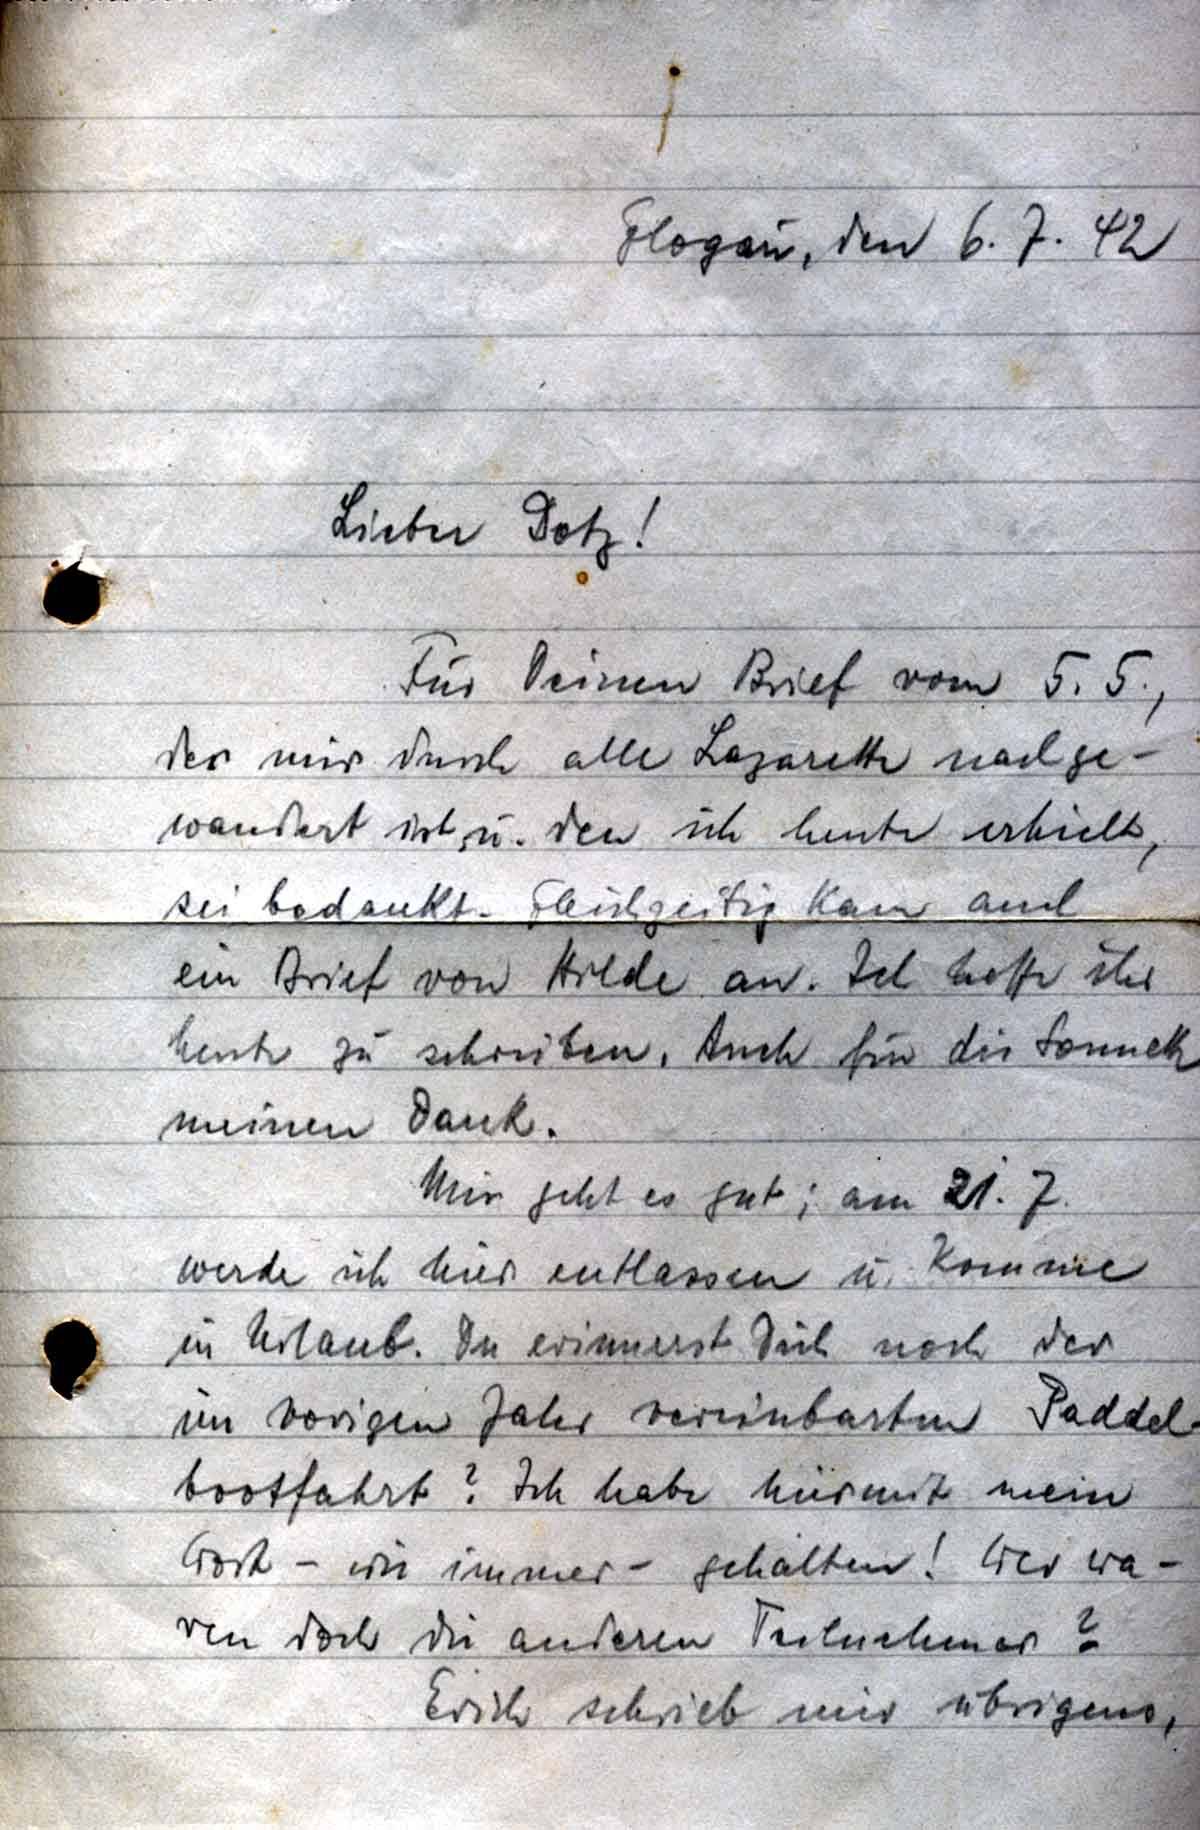 Glogau, den 6. 7. 42
Lieber Dotz!
Für Deinen Brief vom 5. 5.,
der mir durch alle Lazarette nachge-
wandert ist u. den ich heute erhielt,
sei bedankt. Gleichzeitig kam auch
ein Brief von Hilde an. Ich hoffe ihr
heute zu schreiben. Auch für die Sonnette
meinen Dank.
Mir geht es gut; am 21. 7.
werde ich hier entlassen u. komme
in Urlaub. Du erinnerst Dich noch der
im vorigen Jahr vereinbarten Paddel-
bootfahrt? Ich habe hiermit mein
Wort - wie immer - gehalten! Wer wa-
ren doch die anderen Teilnehmer?
Erich schrieb mir übrigens,